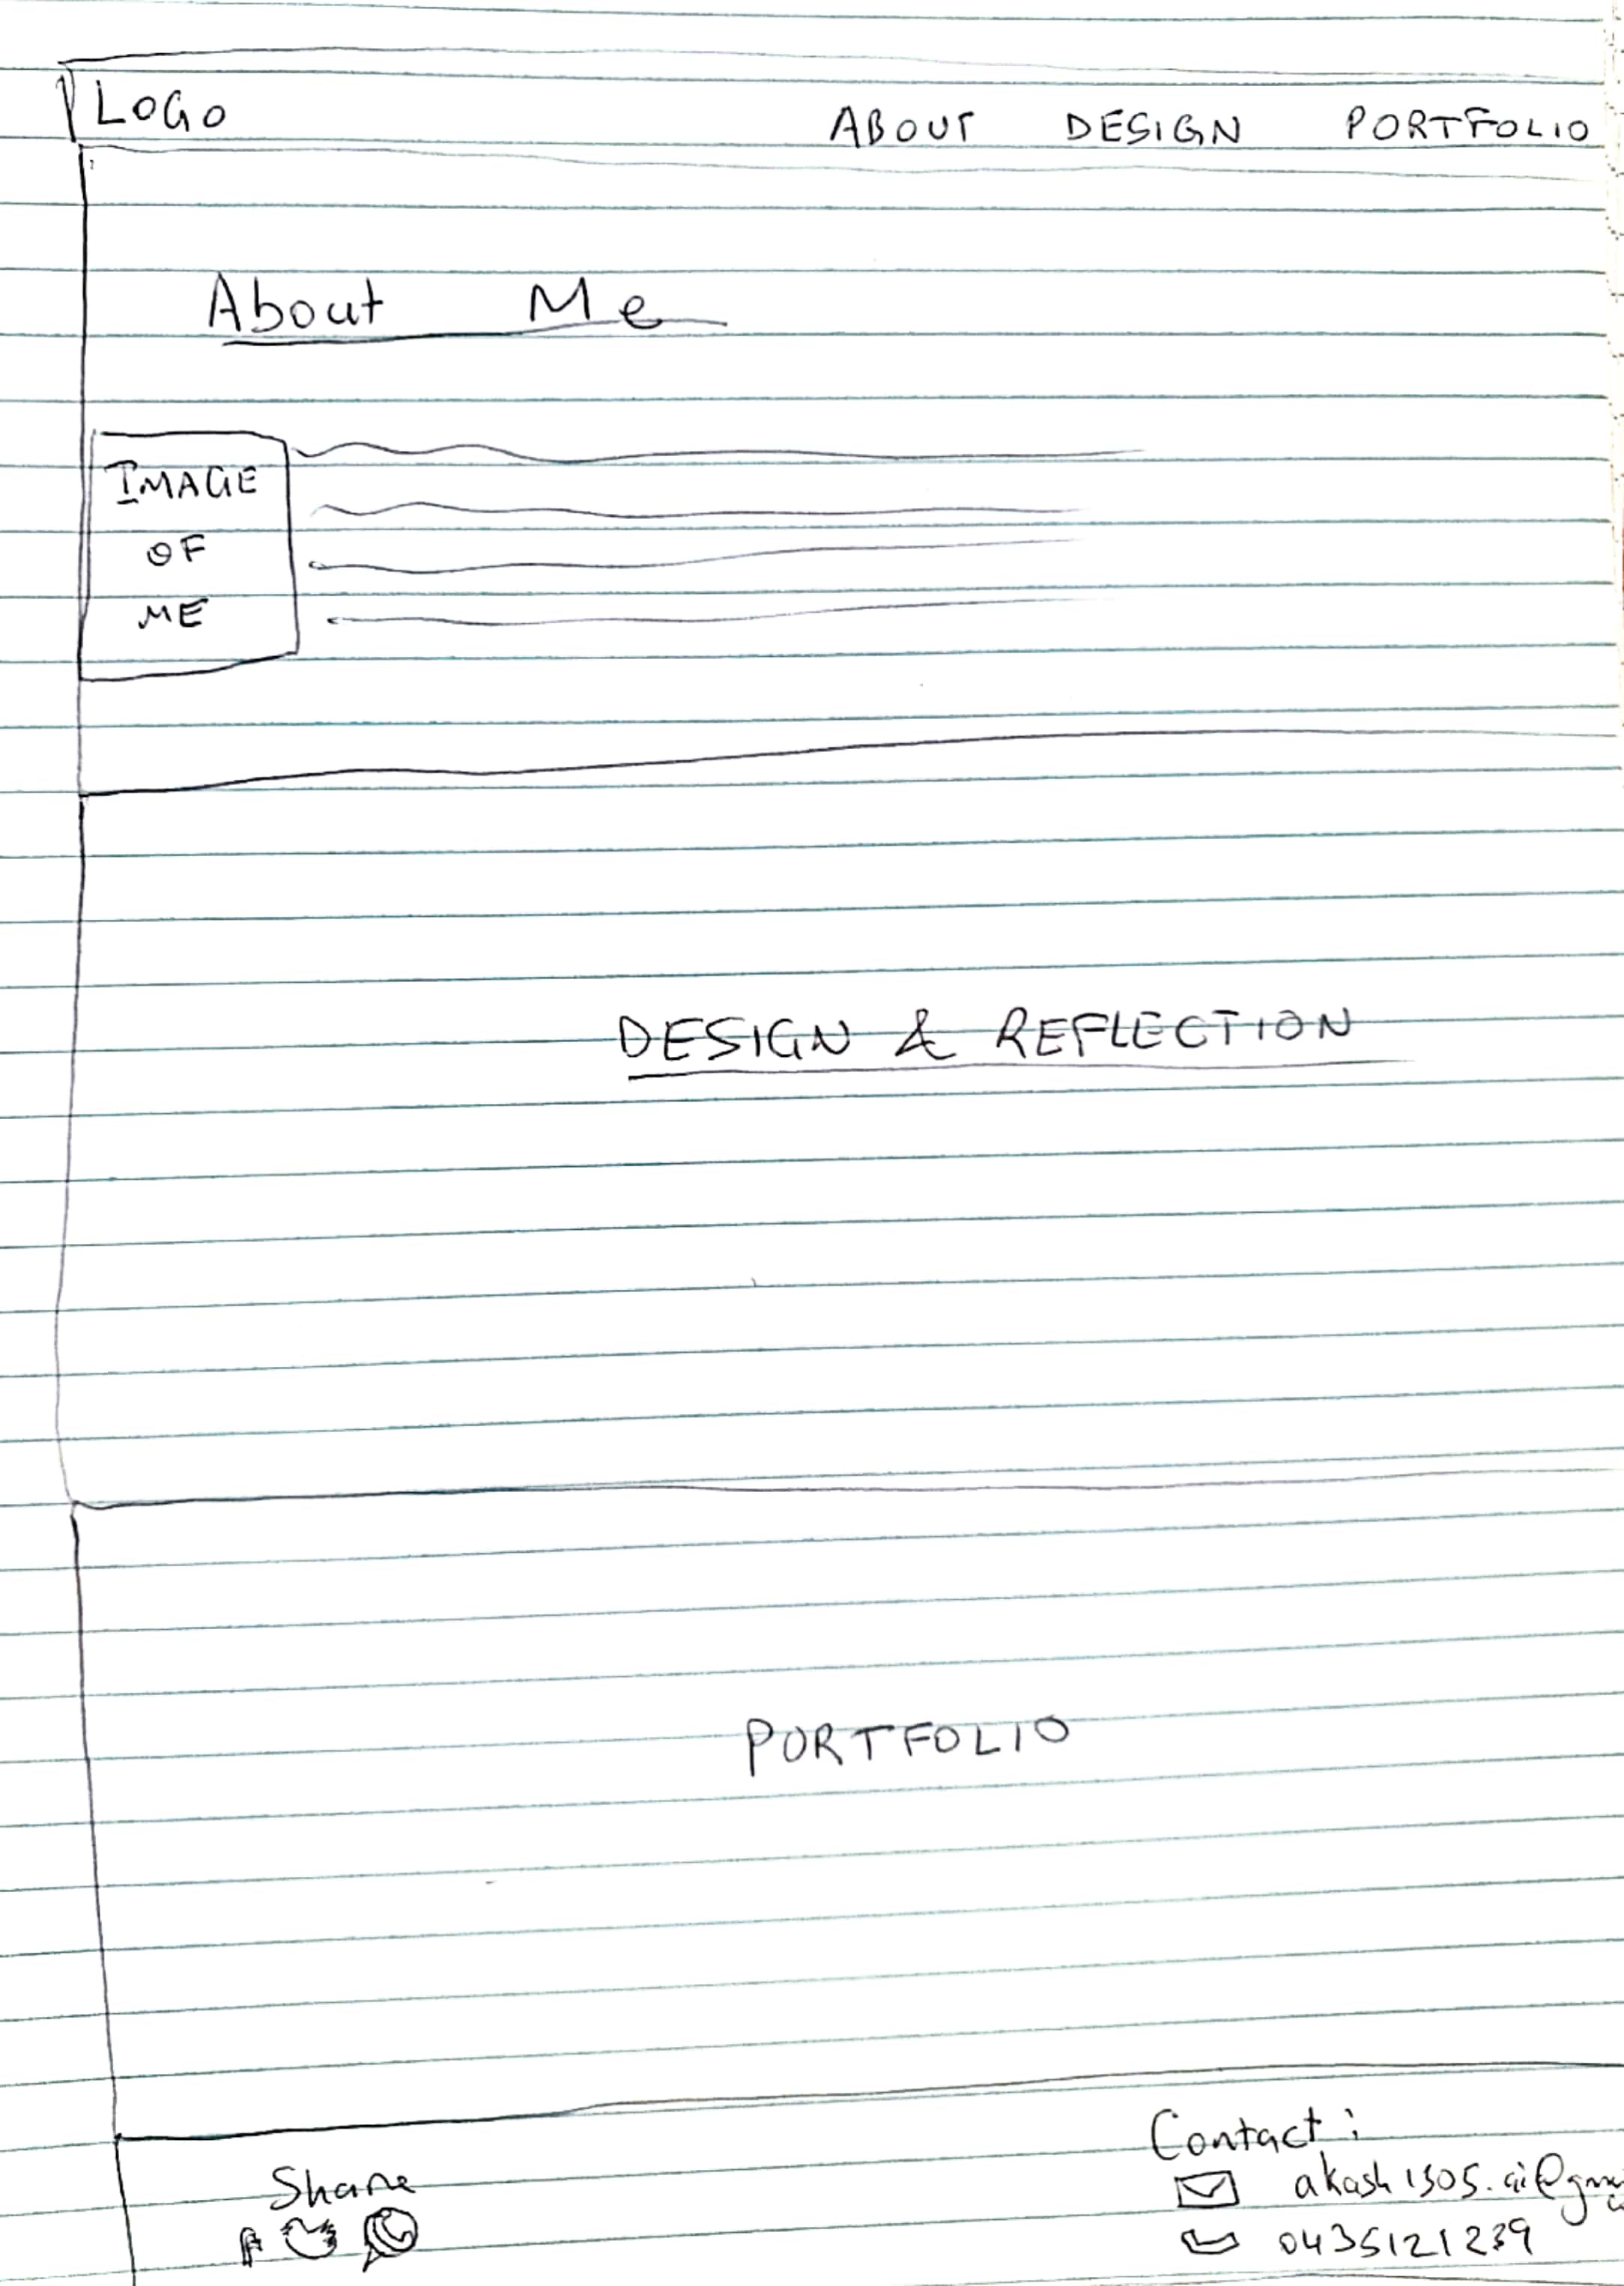 LOGO ABOUT DESIGN PORTFOLIO
About Me
IMAGE
OF
ME
DESIGN & REFLECTION
PORTFOLIO
Share
Contact:
0435121239